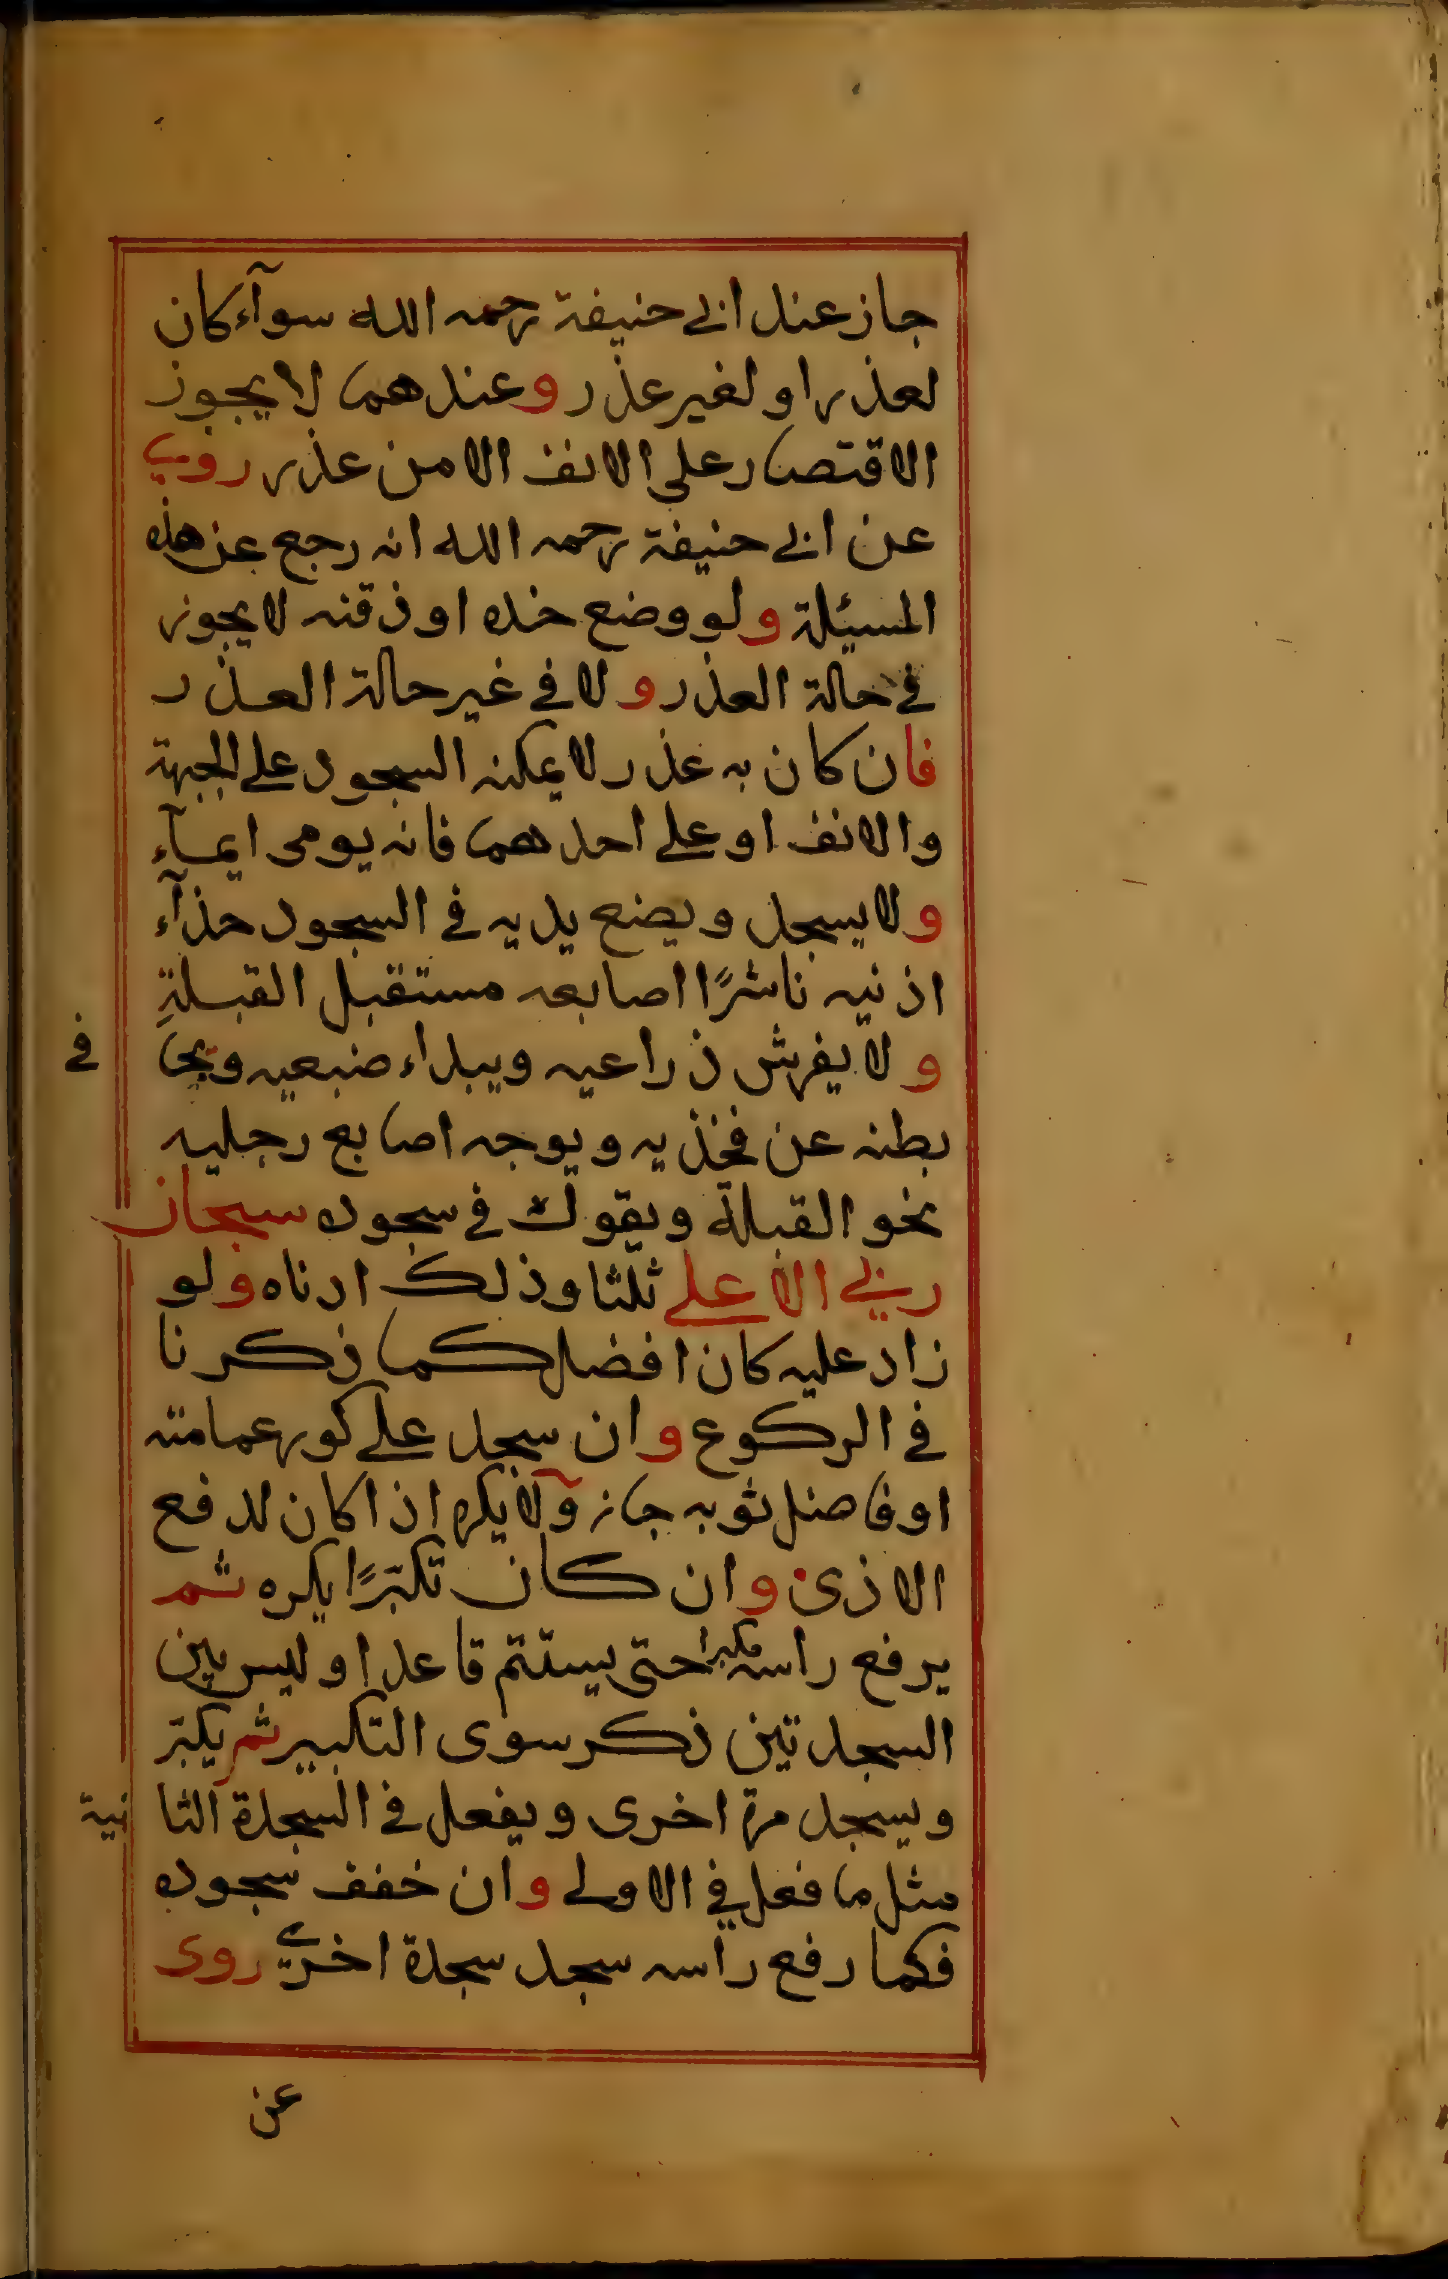 جاز عند ابي حنيفة رحمه الله سوآء كان
لعذر او لغير عذر و عندهما لا يجوز
الاقتصار على الانف الا من عذر روي
عن ابي حنيفة رحمه الله انه رجع عن هذه
المسئلة ولو وضع خده او ذقنه لا يجوز
في حالة العذر ولا في غير حالة العذر
فان كان به عذر لا يمكنه السجود على الجبهة
والانف او على احدهما فانه يومى ايمآء
ولا يسجد ويضع يديه في السجود حذآء
اذنيه ناشرًا اصابعه مستقبل القبلةِ
ولا يفرش ذراعيه ويبداء ضبعيه ويجا
في
بطنه عن فخذيه ويوجه اصابع رجليه
نحو القبلة ويقول في سجوده سبحان
ربي الاعلى ثلثا وذلك ادناه ولو
زاد عليه كان افضل كما ذكرنا
في الركوع وان سجد على كور عمامته
او فاضل ثوبه جاز ولا يكره اذا كان لدفع
الاذى وان كان تكبّرًا يكره ثم
يرفع راسه مكبرا حتى يستتم قاعدا وليس بين
السجدتين ذكر سوى التكبير ثم يكبّر
ويسجد مرة اخرى ويفعل في السجدة الثا
نية
مثل ما فعل في الاولى وان خفف سجوده
فكما رفع راسه سجد سجدة اخرى روى
عن